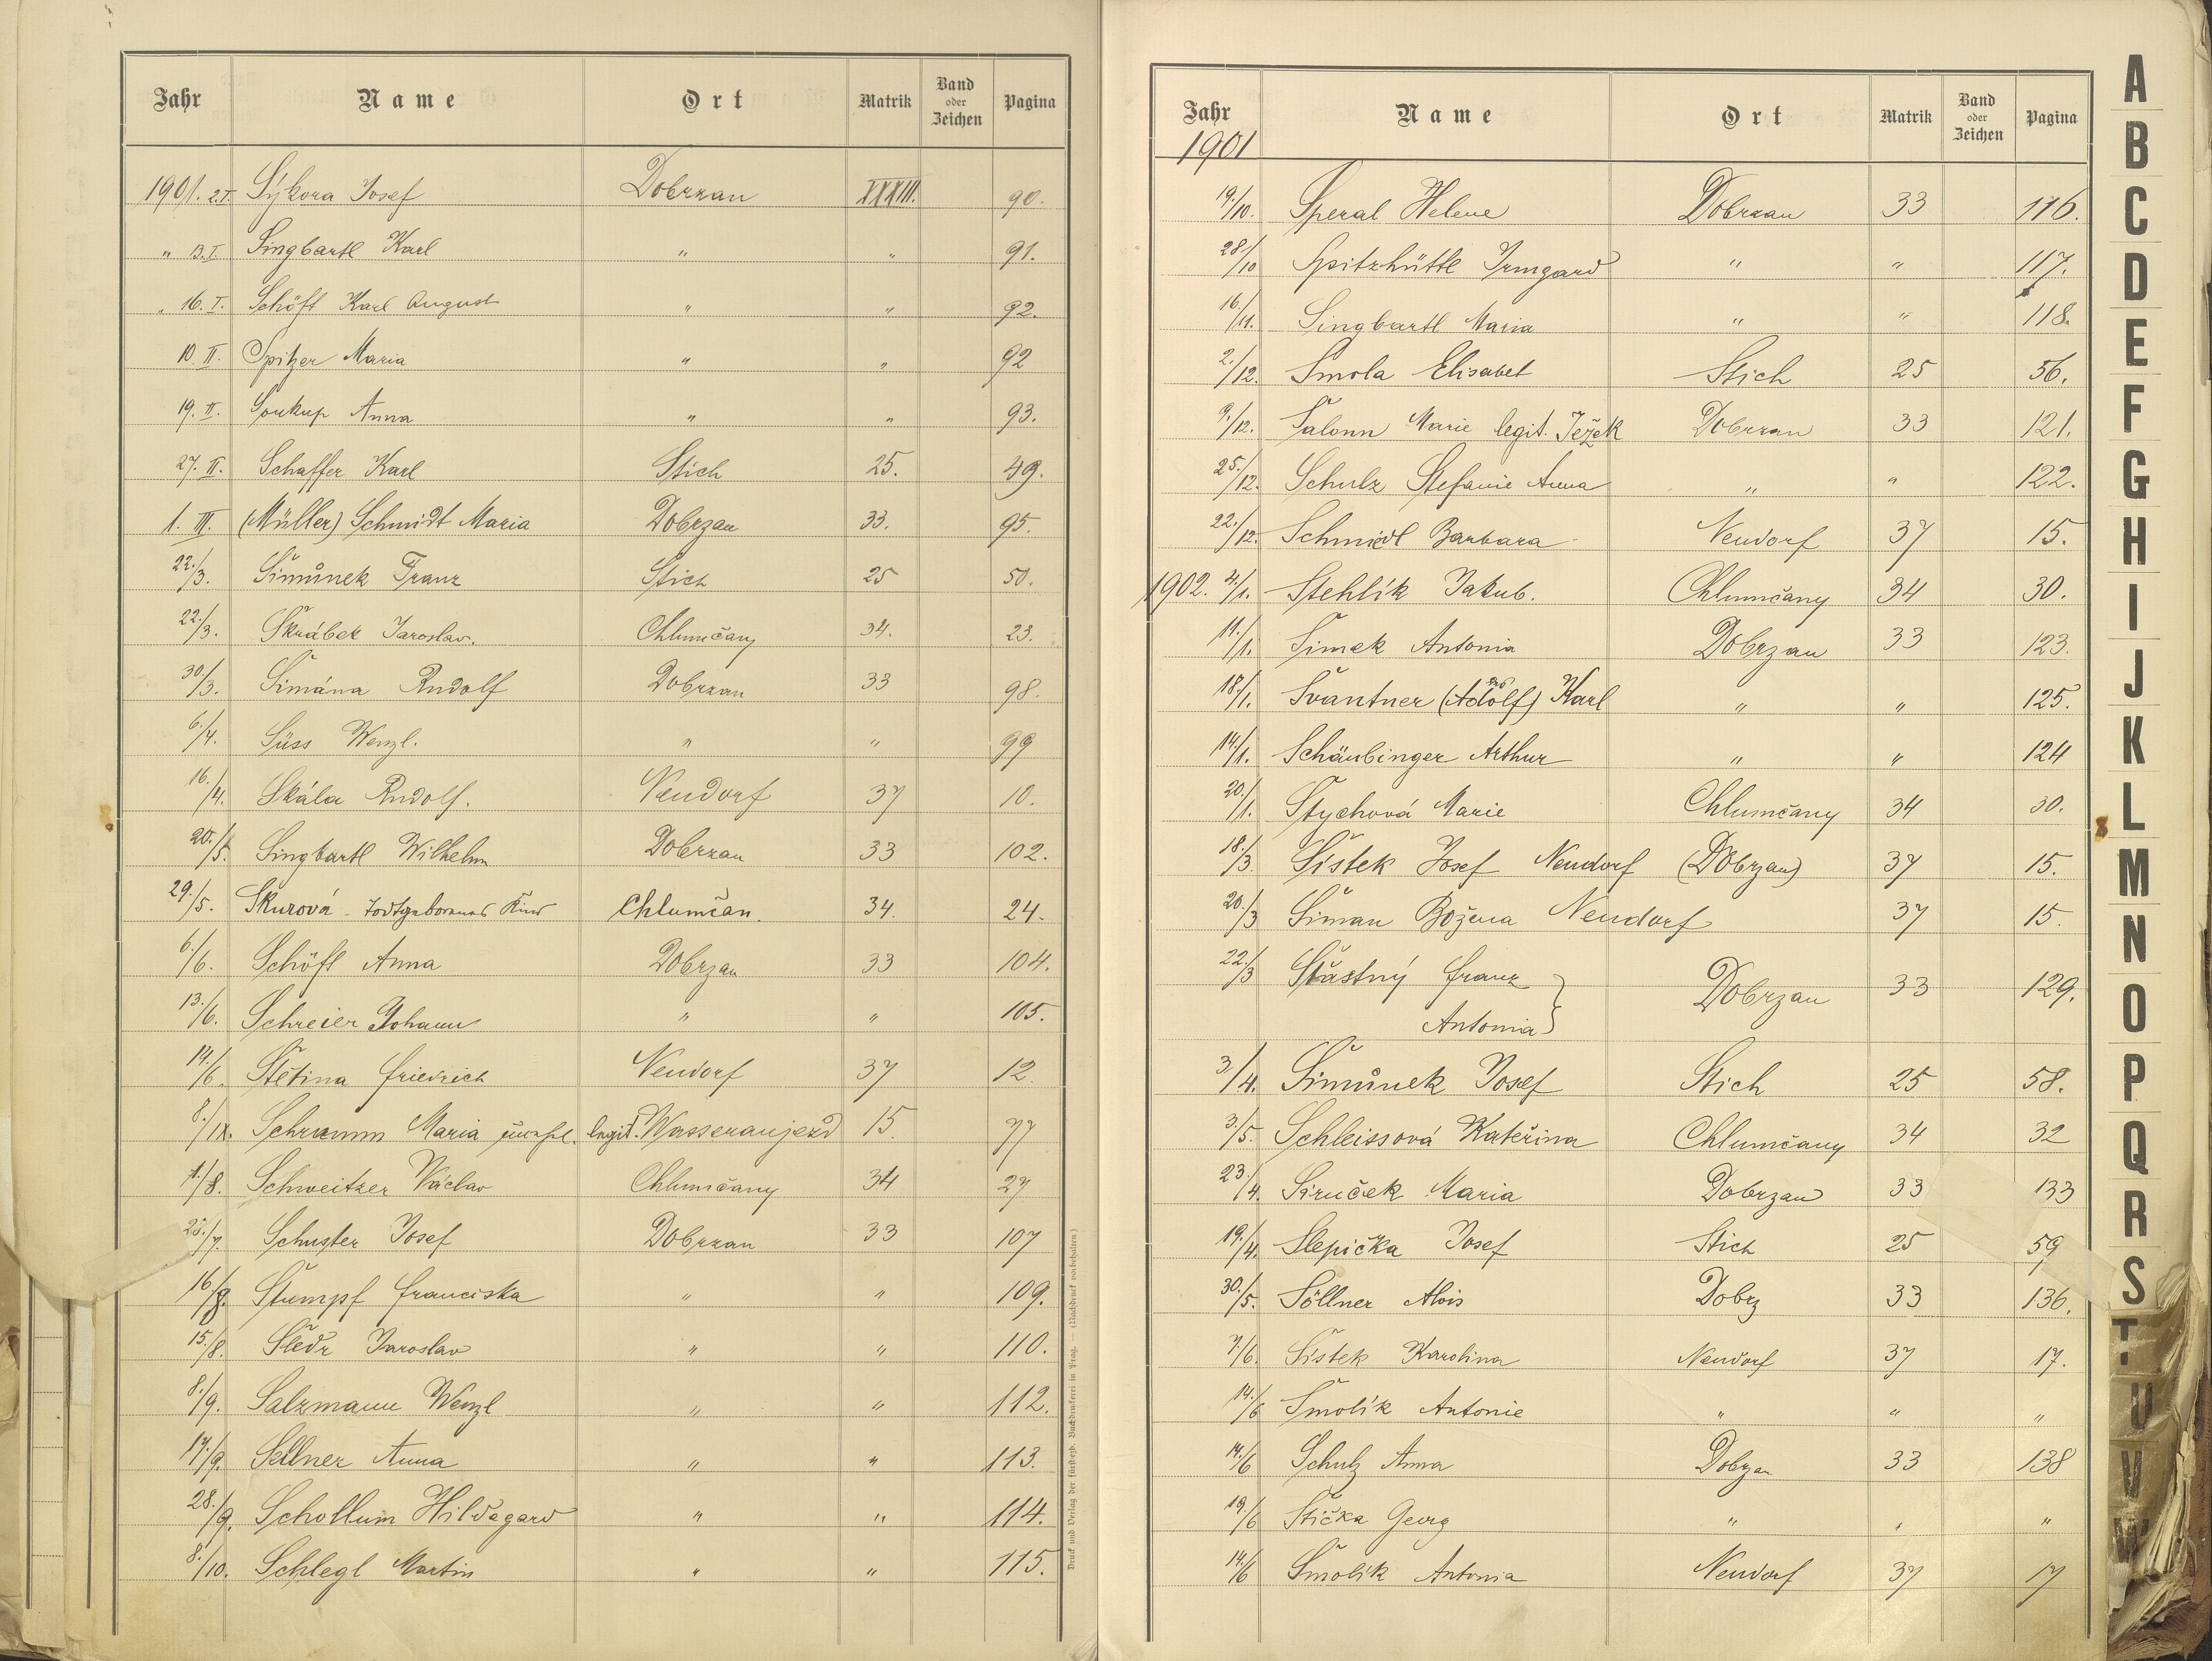 Jahr Name Ort Matrik Band oder Zeichen Pagina
1901. 2.I. Sýkora Josef Dobrzan XXXIII. 90.
" 13.I. Singbartl Karl " " 91.
" 16.I. Schöft Karl August " " 92.
10.II. Spitzer Maria " " 92
19.II. Soukup Anna " " 93.
27.II. Schaffer Karl Stich 25. 49.
1.III. (Müller) Schmidt Maria Dobrzan 33. 95.
22./3. Šimůnek Franz Stich 25 50.
22./3. Škrábek Jaroslav. Chlumčany 34. 23.
30/3. Šimána Rudolf Dobrzan 33 98.
6./4. Süss Wenzl. " " 99
16./4. Skála Rudolf. Neudorf 37 10.
20./5. Singbartl Wilhelm Dobrzan 33 102.
29./5. Skurová - Todtgeborenes Kind Chlumčan. 34. 24.
6./6. Schöfl Anna Dobrzan 33 104.
13./6. Schreier Johann " " 105.
14./6. Štětina Friedrich Neudorf 37 12.
8./IX. Schramm Maria legit. Wasseraujezd 15. 77
1./8. Schweitzer Václav Chlumčany 34 27
/7. Schuster Josef Dobrzan 33 107
16/8. Stumpf Franciska " " 109.
15./8. Šledr Jaroslav " " 110.
8./9. Salzmann Wenzl " " 112.
17./9. Sellner Anna " " 113.
28./9. Schollum Hildegard " " 114.
8./10. Schlegl Martin " " 115.
Druck und Verlag der fürsterzb. Buchdruckerei in Prag. — (Nachdruck vorbehalten.)
Jahr Name Ort Matrik Band oder Zeichen Pagina
1901
19/10. Speral Helene Dobrzan 33 116.
28/10 Spitzhüttl Irmgard " " 117.
16/11. Singbartl Maria " " 118.
2./12. Smola Elisabet Stich 25 56.
9./12. Šalonn Marie legit. Ježek Dobrzan 33 121.
25./12. Schulz Stefanie Anna " " 122.
22./12. Schmiedl Barbara Neudorf 37 15.
1902. 4./1. Stehlík Jakub. Chlumčany 34 30.
11./1. Šimek Antonia Dobrzan 33 123.
18./1. Švantner (Adolf) Karl " " 125.
14./1. Schäubinger Arthur " " 124
20./1. Štychová Marie Chlumčany 34 30.
18./3. Šistek Josef Neudorf (Dobrzan) 37 15.
20./3 Šiman Božena Neudorf 37 15.
22./3 Šťastný Franz Dobrzan 33 129.
Antonia
3./4. Šimůnek Josef Stich 25 58.
3./5. Schleissová Kateřina Chlumčany 34 32
23./4. Siruček Maria Dobrzan 33 133
19./4. Slepička Josef Stich 25 59
30./5. Söllner Alois Dobrz 33 136.
7./6. Šistek Karolina Neudorf 37 17.
14./6 Šmolík Antonie " " "
14./6 Schulz Anna Dobrzan 33 138
19./6 Stička Georg " " "
14./6 Šmolík Antonia Neudorf 37 17
A
B
C
D
E
F
G
H
I
J
K
L
M
N
O
P
Q
R
S
T
U
V
W